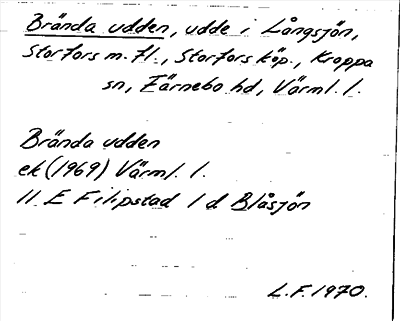 Brända udden, udde i Långsjön,
Storfors m.fl., Storfors köp., Kroppa
sn, Färnebo hd, Värml. l.
Brända udden
ek (1969) Värml. l.
11 E Filipstad 1 d Blåsjön
L.F. 1970.